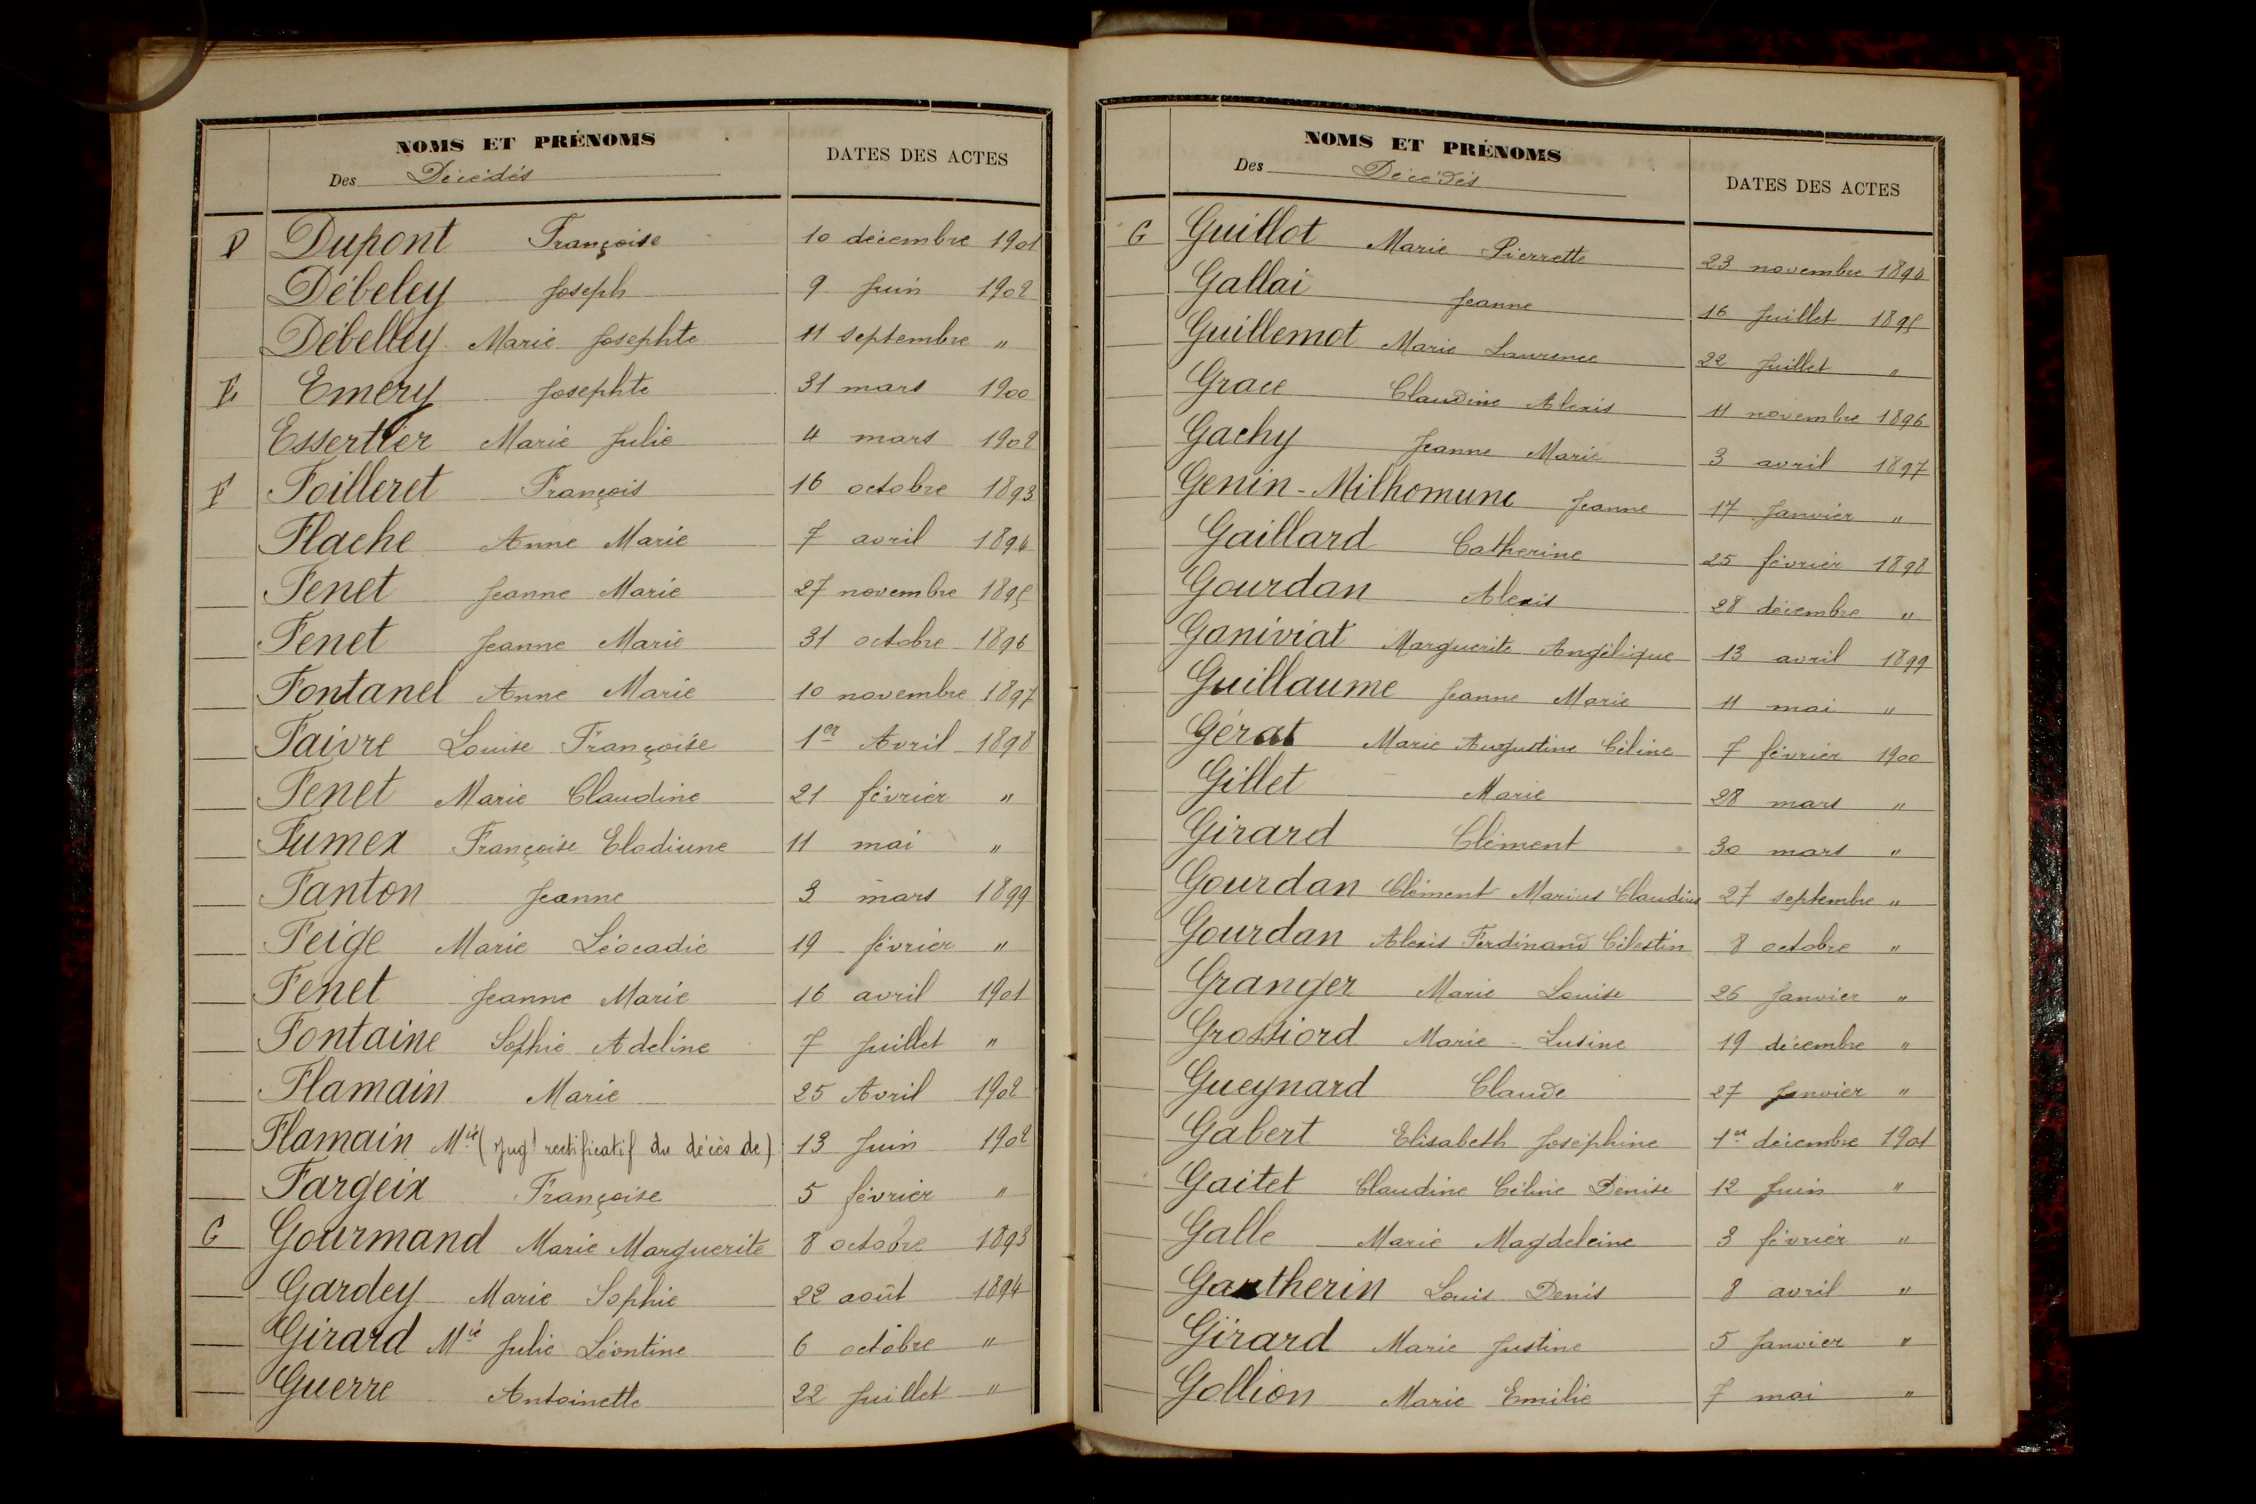 NOMS ET PRÉNOMS
Des Décédés
DATES DES ACTES
D Dupont Françoise 10 décembre 1901
Débeley Joseph 9 Juin 1902
Débelley Marie Josephte 11 septembre "
E Emery Josephte 31 mars 1900
Essertier Marie Julie 4 mars 1902
F Foilleret François 16 octobre 1893
Flache Anne Marie 7 avril 1894
Fenet Jeanne Marie 27 novembre 1895
Fenet Jeanne Marie 31 octobre 1896
Fontanel Anne Marie 10 novembre 1897
Faivre Louise Françoise 1er Avril 1898
Fenet Marie Claudine 21 février "
Fumex Françoise Elodiune 11 mai "
Fanton Jeanne 3 mars 1899
Feige Marie Léocadie 19 février "
Fenet Jeanne Marie 16 avril 1901
Fontaine Sophie Adeline 7 Juillet "
Flamain Marie 25 Avril 1902
Flamain Mie (Jugt rectificatif du décès de) 13 Juin 1902
Fargeix Françoise 5 février "
G Gourmand Marie Marguerite 8 octobre 1893
Gardey Marie Sophie 22 août 1894
Girard Mie Julie Léontine 6 octobre "
Guerre Antoinette 22 Juillet "
NOMS ET PRÉNOMS
Des Décédés
DATES DES ACTES
G Guillot Marie Pierrette 23 novembre 1894
Gallai Jeanne 16 Juillet 1895
Guillemot Marie Laurence 22 Juillet "
Grace Claudine Alexis 11 novembre 1896
Gachy Jeanne Marie 3 avril 1897
Genin-Milhomune Jeanne 17 Janvier "
Gaillard Catherine 25 février 1898
Gourdan Alexis 28 décembre "
Goniviat Marguerite Angélique 13 avril 1899
Guillaume Jeanne Marie 11 mai "
Gérat Marie Augustine Céline 7 février 1900
Gillet Marie 28 mars "
Girard Clément 30 mars "
Gourdan Clément Marius Claudius 27 septembre "
Gourdan Alexis Ferdinand Célestin 8 octobre "
Granger Marie Louise 26 Janvier "
Grossiord Marie-Lusine 19 décembre "
Gueynard Claude 27 Janvier "
Gabert Elisabeth Joséphine 1er décembre 1901
Gaitet Claudine Céline Denise 12 Juin "
Galle Marie Magdeleine 3 février "
Gautherin Louis Denis 8 avril "
Girard Marie Justine 5 Janvier "
Gollion Marie Emilie 7 mai "